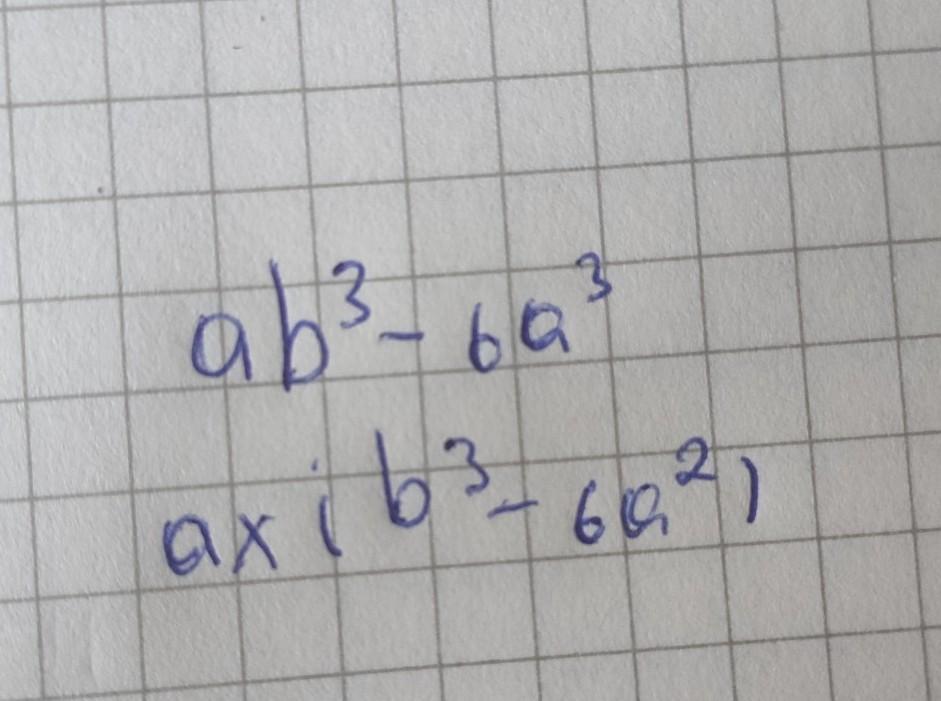 ab³ - 6a³
a x ( b³ - 6a² )